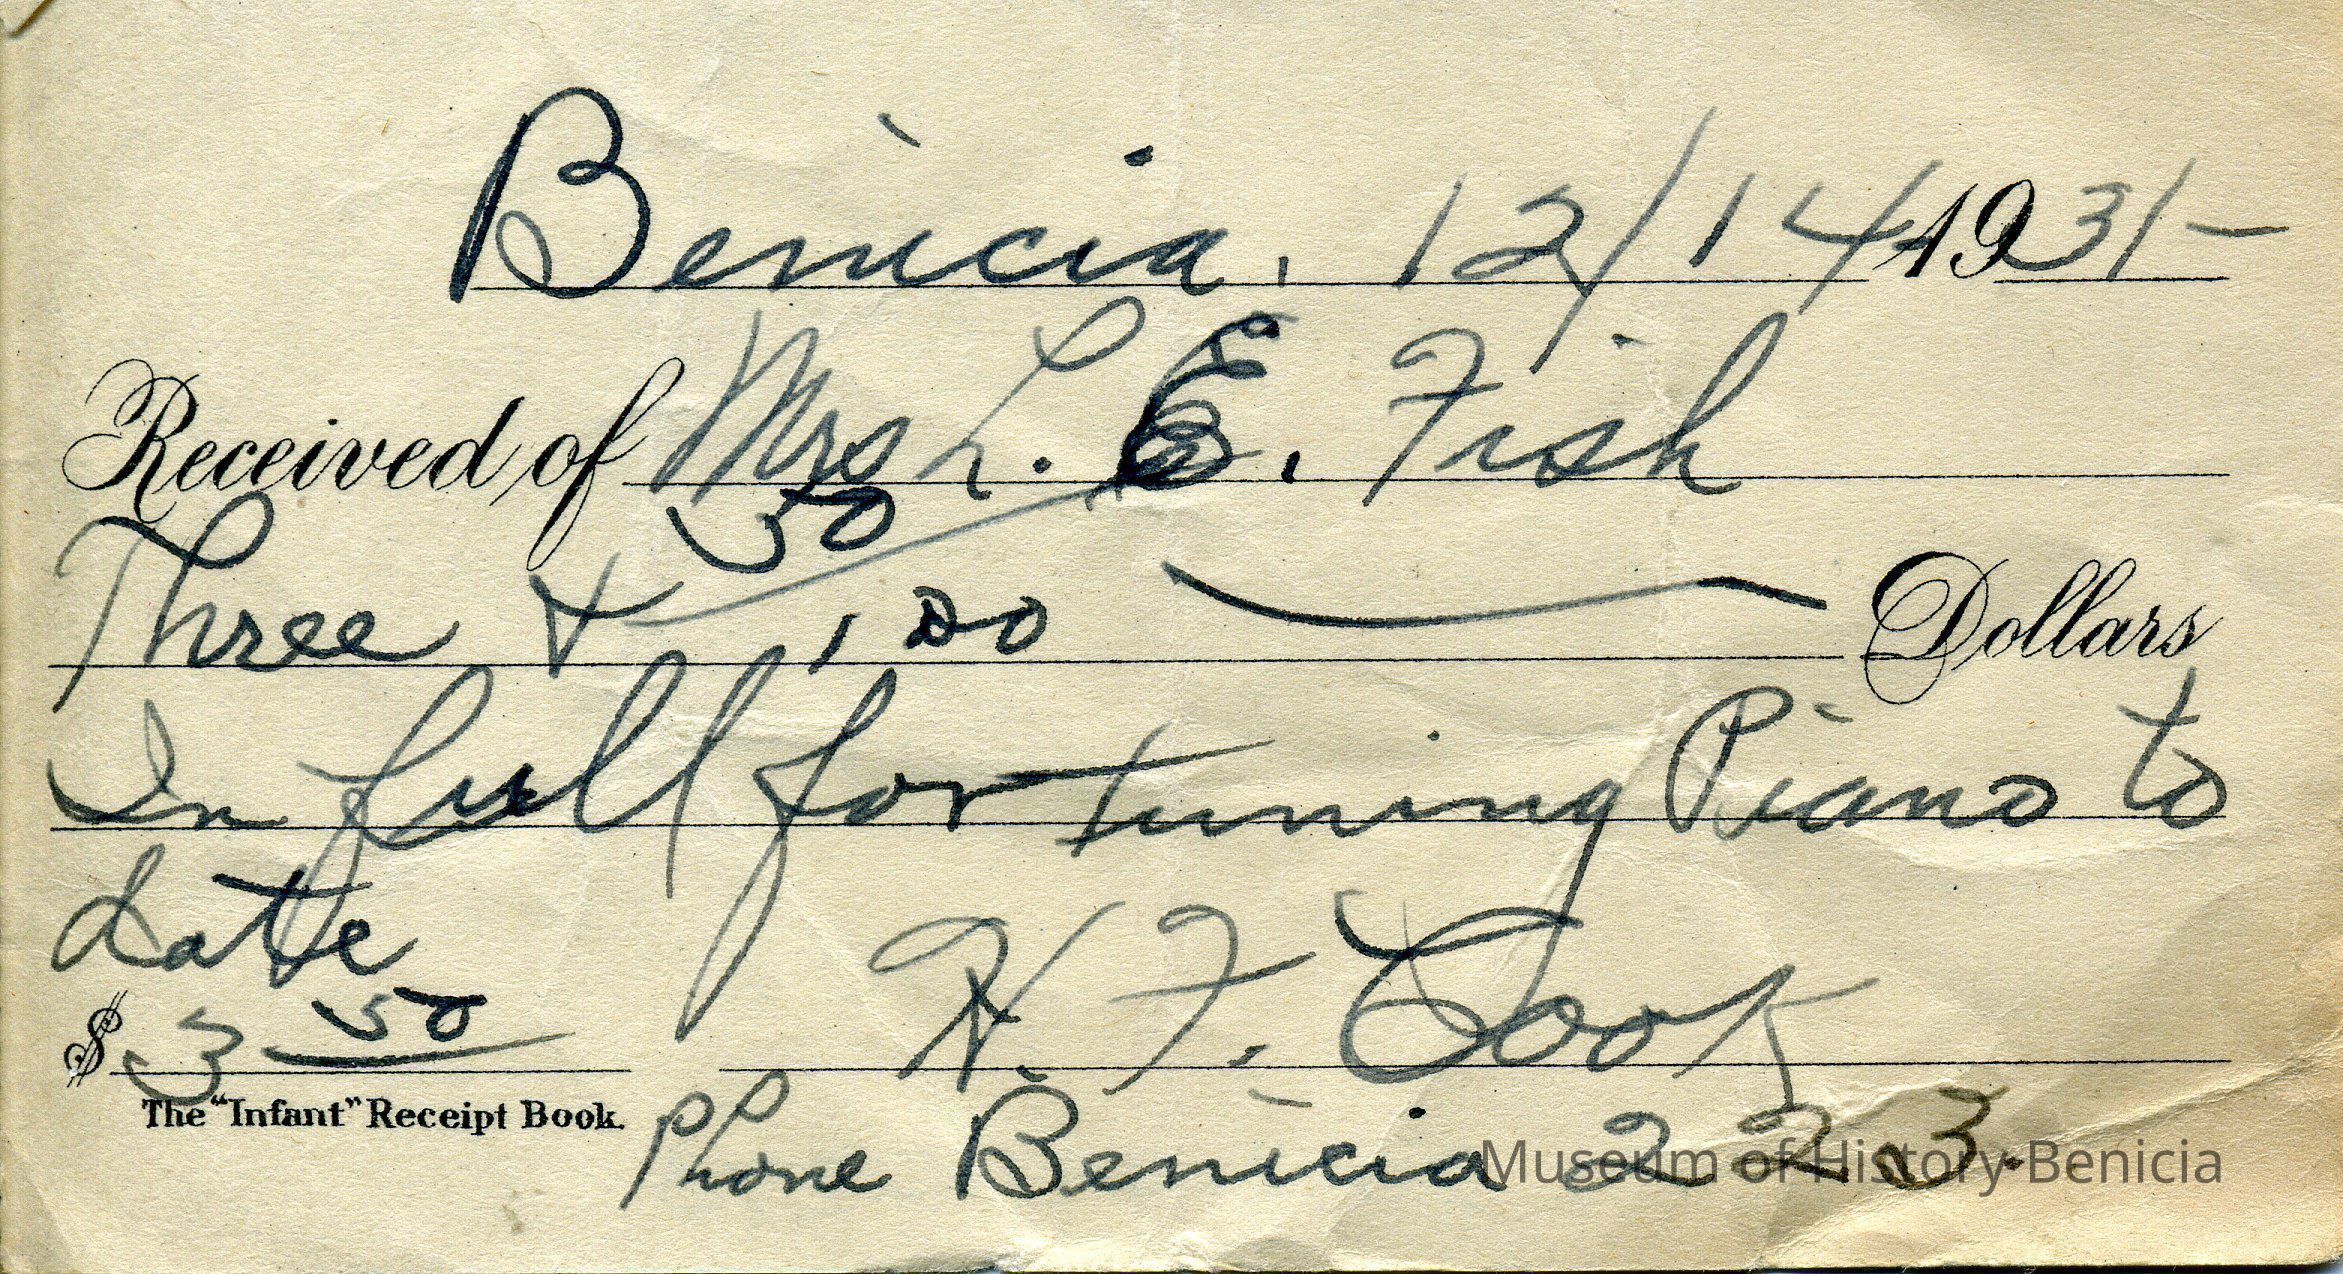 Benicia, 12/14/1931-
Received of Mrs L. E. Fish
Three & 50/100 Dollars
In full for tuning Piano to
date
$ 3 50 H. F. Cook
The "Infant" Receipt Book.
Phone Benicia 223.
Museum of History Benicia